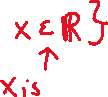 x ∈ ℝ}
x is